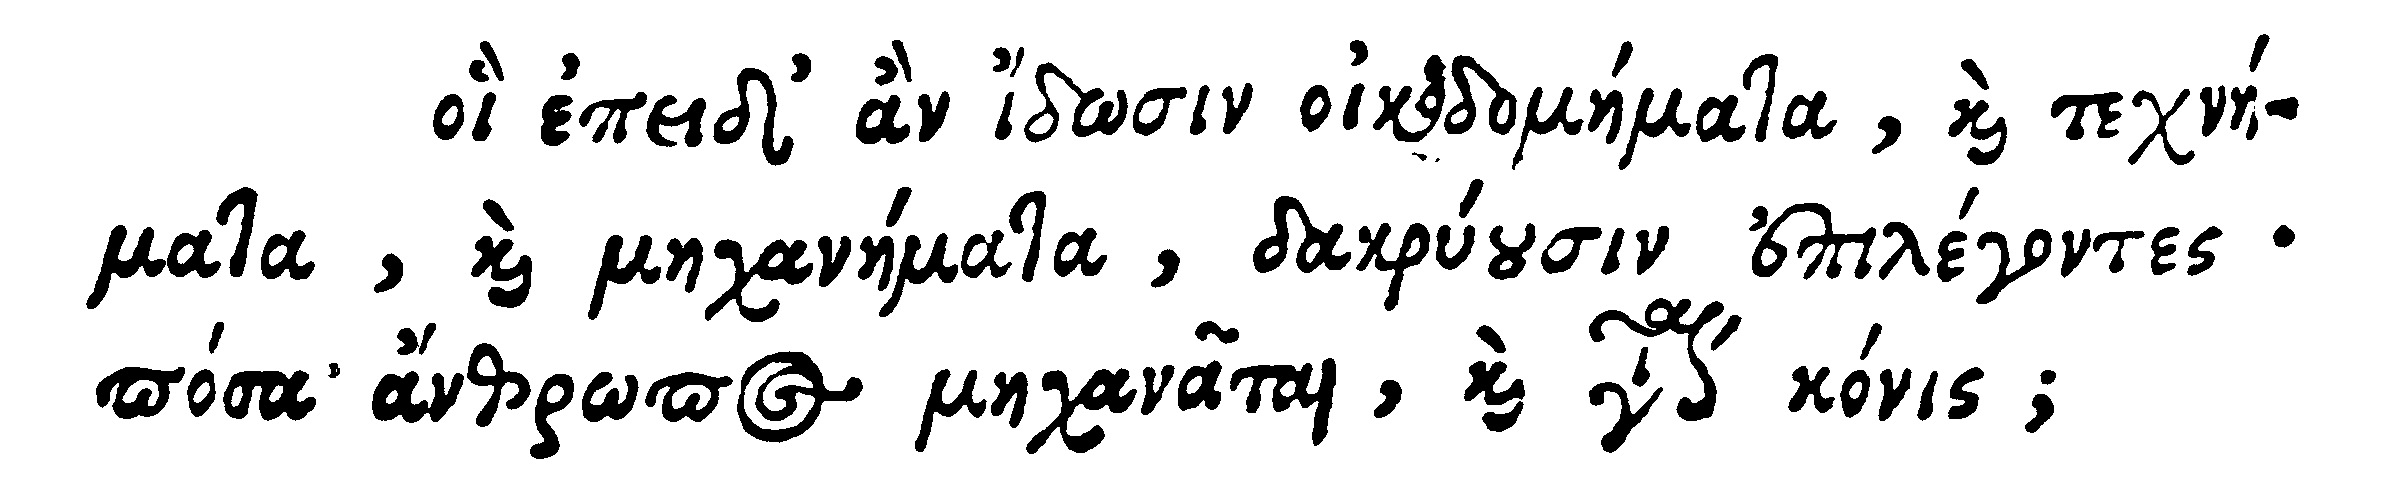 οἳ ἐπειδ᾽ ἂν ἴδωσιν οἰκοδομήματα, ϗ̀ τεχνή-
ματα, ϗ̀ μηχανήματα, δακρύȣσιν ἐπιλέγοντες·
πόσα ἄνθρωπος μηχανᾶται, ϗ̀ κόνις;